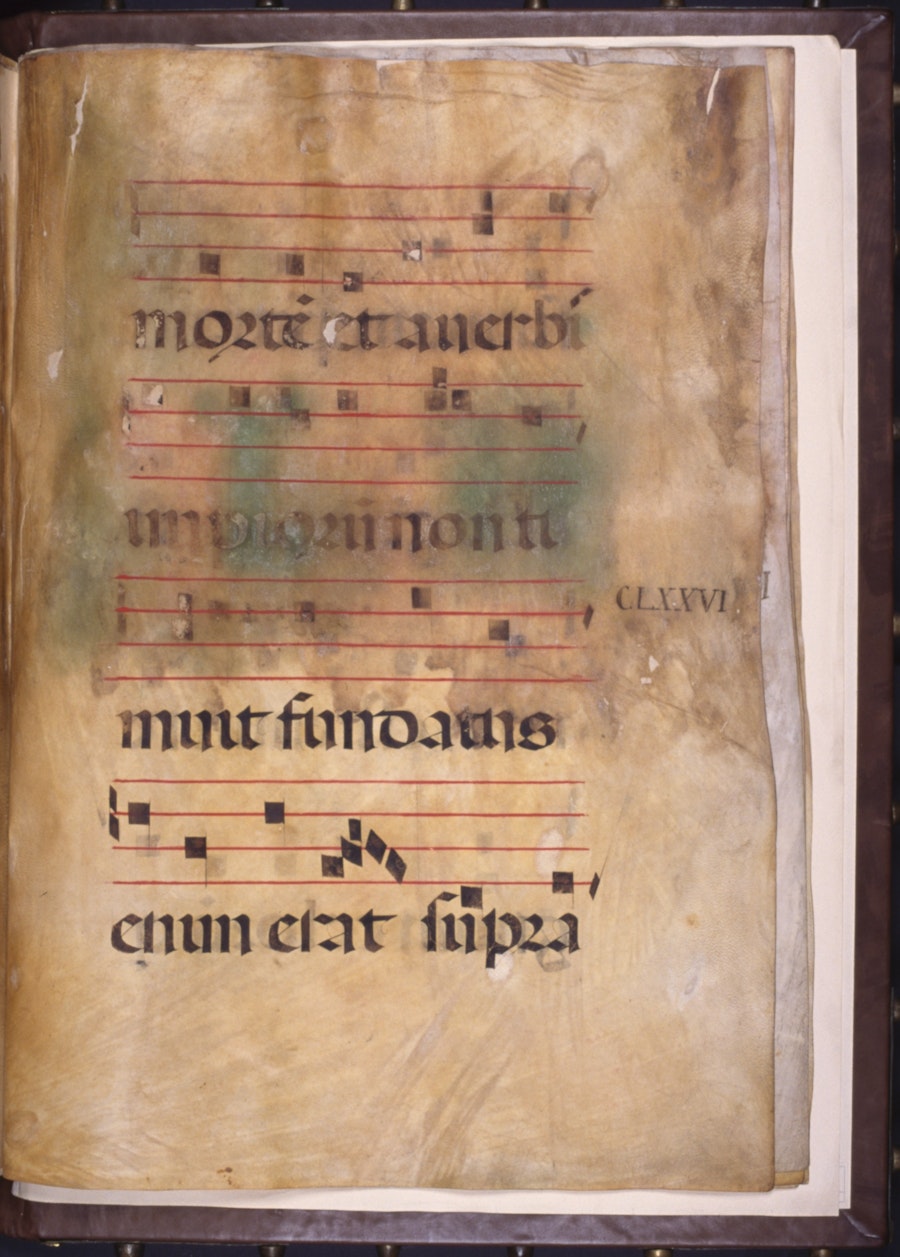 mortē et a verbi
impiorū non ti
CLXXVI
muit fundatus
enim erat supra